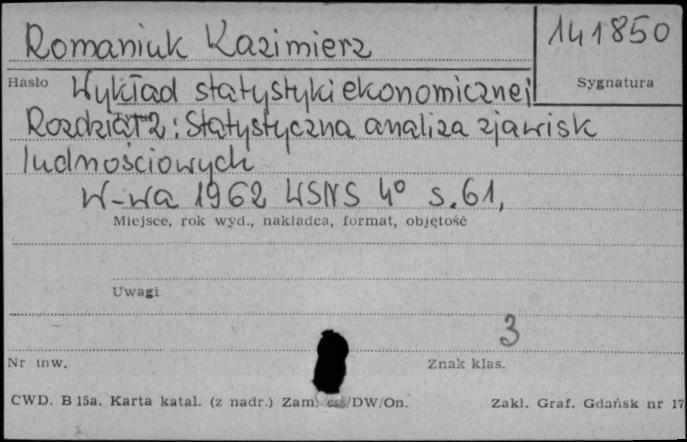 Romaniuk Kazimierz
141850
Hasło
Sygnatura
Wykład statystyki ekonomicznej
Rozdział 2: Statystyczna analiza zjawisk
ludnościowych
W-wa 1962 WSNS 4° s. 61,
Miejsce, rok wyd., nakładca, format, objętość
Uwagi
3
Nr inw.
Znak klas.
CWD. B 15a. Karta katal. (z nadr.) Zam. /DW/On.
Zakł. Graf. Gdańsk nr 17